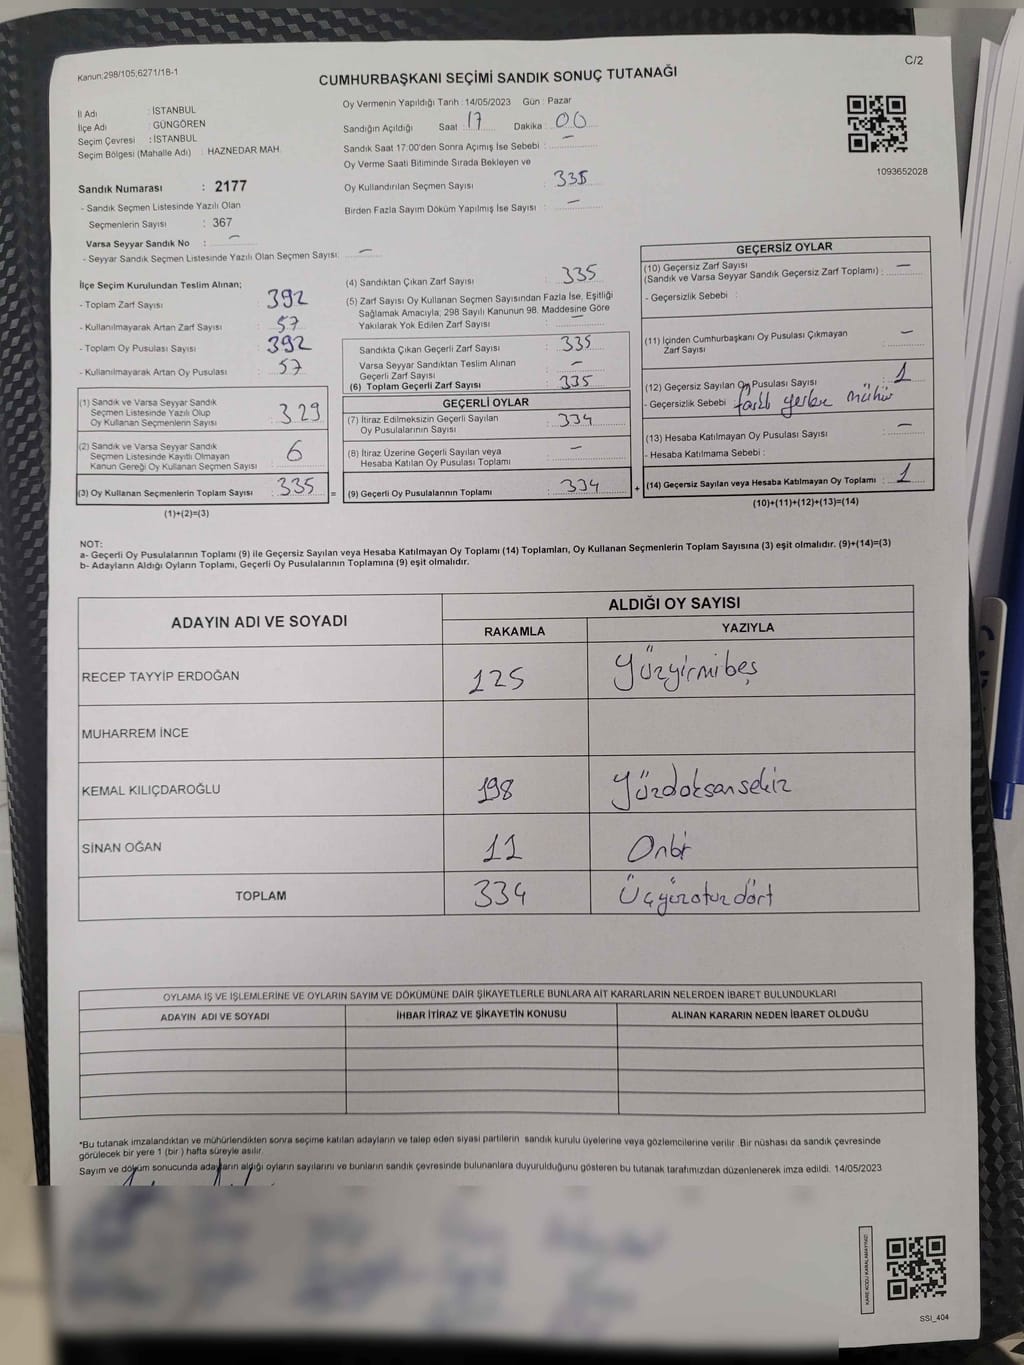 Kanun;298/105;6271/18-1
C/2
CUMHURBAŞKANI SEÇİMİ SANDIK SONUÇ TUTANAĞI
İl Adı : İSTANBUL
İlçe Adı : GÜNGÖREN
Seçim Çevresi : İSTANBUL
Seçim Bölgesi (Mahalle Adı) : HAZNEDAR MAH.
Sandık Numarası : 2177
- Sandık Seçmen Listesinde Yazılı Olan
Seçmenlerin Sayısı : 367
Varsa Seyyar Sandık No : —
- Seyyar Sandık Seçmen Listesinde Yazılı Olan Seçmen Sayısı: —
Oy Vermenin Yapıldığı Tarih : 14/05/2023 Gün : Pazar
Sandığın Açıldığı Saat : 17 Dakika : 00
Sandık Saat 17:00'den Sonra Açımış İse Sebebi : —
Oy Verme Saati Bitiminde Sırada Bekleyen ve
Oy Kullandırılan Seçmen Sayısı : 335
Birden Fazla Sayım Döküm Yapılmış İse Sayısı : —
1093652028
İlçe Seçim Kurulundan Teslim Alınan;
- Toplam Zarf Sayısı : 392
- Kullanılmayarak Artan Zarf Sayısı : 57
- Toplam Oy Pusulası Sayısı : 392
- Kullanılmayarak Artan Oy Pusulası : 57
(1) Sandık ve Varsa Seyyar Sandık
Seçmen Listesinde Yazılı Olup
Oy Kullanan Seçmenlerin Sayısı : 329
(2) Sandık ve Varsa Seyyar Sandık
Seçmen Listesinde Kayıtlı Olmayan
Kanun Gereği Oy Kullanan Seçmen Sayısı : 6
(3) Oy Kullanan Seçmenlerin Toplam Sayısı : 335 =
(1)+(2)=(3)
(4) Sandıktan Çıkan Zarf Sayısı : 335
(5) Zarf Sayısı Oy Kullanan Seçmen Sayısından Fazla İse, Eşitliği
Sağlamak Amacıyla; 298 Sayılı Kanunun 98. Maddesine Göre
Yakılarak Yok Edilen Zarf Sayısı : —
Sandıkta Çıkan Geçerli Zarf Sayısı : 335
Varsa Seyyar Sandıktan Teslim Alınan
Geçerli Zarf Sayısı : —
(6) Toplam Geçerli Zarf Sayısı : 335
GEÇERLİ OYLAR
(7) İtiraz Edilmeksizin Geçerli Sayılan
Oy Pusulalarının Sayısı : 334
(8) İtiraz Üzerine Geçerli Sayılan veya
Hesaba Katılan Oy Pusulası Toplamı : —
(9) Geçerli Oy Pusulalarının Toplamı : 334 +
GEÇERSİZ OYLAR
(10) Geçersiz Zarf Sayısı
(Sandık ve Varsa Seyyar Sandık Geçersiz Zarf Toplamı) : —
- Geçersizlik Sebebi :
(11) İçinden Cumhurbaşkanı Oy Pusulası Çıkmayan
Zarf Sayısı : —
(12) Geçersiz Sayılan Oy Pusulası Sayısı : 1
- Geçersizlik Sebebi : farklı yerlere mühür
(13) Hesaba Katılmayan Oy Pusulası Sayısı : —
- Hesaba Katılmama Sebebi :
(14) Geçersiz Sayılan veya Hesaba Katılmayan Oy Toplamı : 1
(10)+(11)+(12)+(13)=(14)
NOT:
a- Geçerli Oy Pusulalarının Toplamı (9) ile Geçersiz Sayılan veya Hesaba Katılmayan Oy Toplamı (14) Toplamları, Oy Kullanan Seçmenlerin Toplam Sayısına (3) eşit olmalıdır. (9)+(14)=(3)
b- Adayların Aldığı Oyların Toplamı, Geçerli Oy Pusulalarının Toplamına (9) eşit olmalıdır.
ADAYIN ADI VE SOYADI
ALDIĞI OY SAYISI
RAKAMLA YAZIYLA
RECEP TAYYİP ERDOĞAN 125 Yüzyirmibeş
MUHARREM İNCE
KEMAL KILIÇDAROĞLU 198 Yüzdoksansekiz
SİNAN OĞAN 11 Onbir
TOPLAM 334 Üçyüzotuzdört
OYLAMA İŞ VE İŞLEMLERİNE VE OYLARIN SAYIM VE DÖKÜMÜNE DAİR ŞİKAYETLERLE BUNLARA AİT KARARLARIN NELERDEN İBARET BULUNDUKLARI
ADAYIN ADI VE SOYADI İHBAR İTİRAZ VE ŞİKAYETİN KONUSU ALINAN KARARIN NEDEN İBARET OLDUĞU
*Bu tutanak imzalandıktan ve mühürlendikten sonra seçime katılan adayların ve talep eden siyasi partilerin sandık kurulu üyelerine veya gözlemcilerine verilir .Bir nüshası da sandık çevresinde
görülecek bir yere 1 (bir ) hafta süreyle asılır.
Sayım ve döküm sonucunda adayların aldığı oyların sayılarını ve bunların sandık çevresinde bulunanlara duyurulduğunu gösteren bu tutanak tarafımızdan düzenlenerek imza edildi. 14/05/2023
KARE KODU KARALAMAYINIZ!
SSI_404